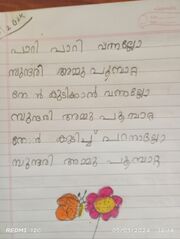 പാറി പാറി വന്നല്ലോ
സുന്ദരി അമ്മു പൂമ്പാറ്റ
തേൻ കുടിക്കാൻ വന്നല്ലോ
സുന്ദരി അമ്മു പൂമ്പാറ്റ
തേൻ കുടിച്ച് പറന്നല്ലോ
സുന്ദരി അമ്മു പൂമ്പാറ്റ
REDMI 12C
09/03/2024